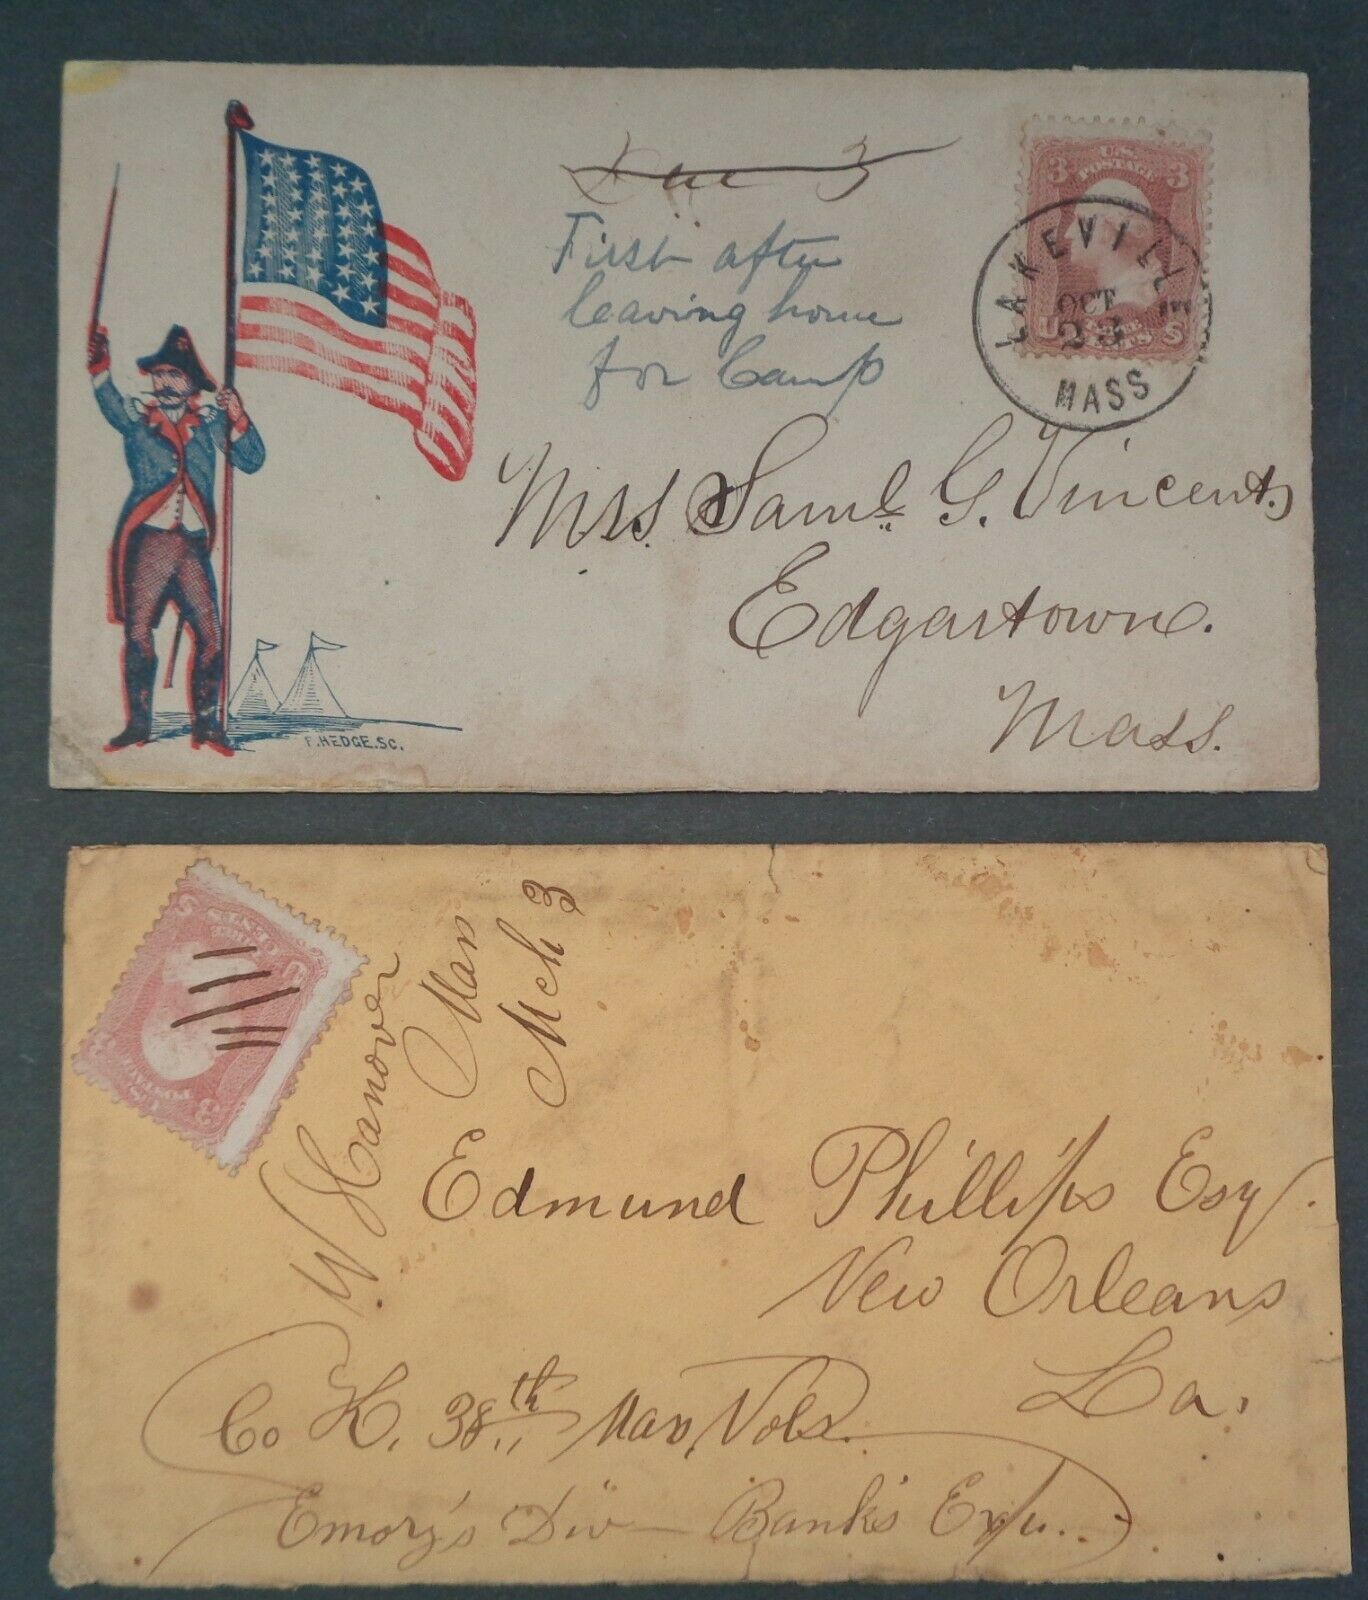 Due 3
First after
leaving home
for Camp
3 U.S. POSTAGE 3
U THREE CENTS S
LAKEVILLE
OCT
23
MASS
Mrs. Saml. G. Vincent,
Edgartown.
Mass.
F. HEDGE. SC.
3 U.S. POSTAGE 3
U THREE CENTS S
W. Hanover
Mass
Mch 3
Edmund Phillips Esq.
New Orleans
La.
Co K, 38th Mass, Vols.
Emory's Div — Banks Exp...